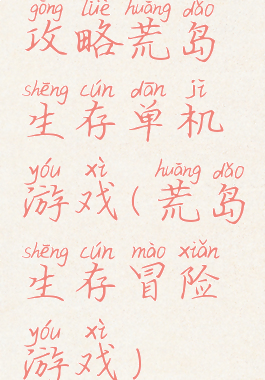 gōng lüè huāng dǎo
攻略荒岛
shēng cún dān jī
生存单机
yóu xì ( huāng dǎo
游戏(荒岛
shēng cún mào xiǎn
生存冒险
yóu xì
游戏)